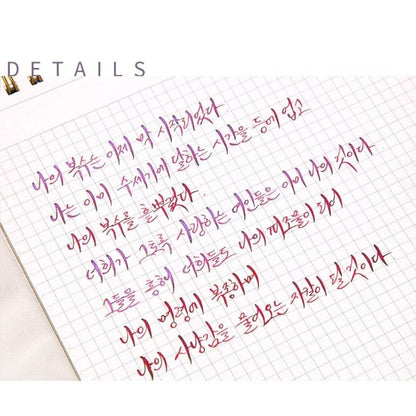 DETAILS
나의 복수는 이제 막 시작되었다
나는 이미 수세기에 달하는 시간을 등에 업고
나의 복수를 흩뿌렸다
너희가 그토록 사랑하는 여인들은 이미 나의 것이다
그들을 통해 너희들도 나의 피조물이 되어
나의 명령에 부종하며
나의 사냥감을 물어오는 자칼이 될 것이다.